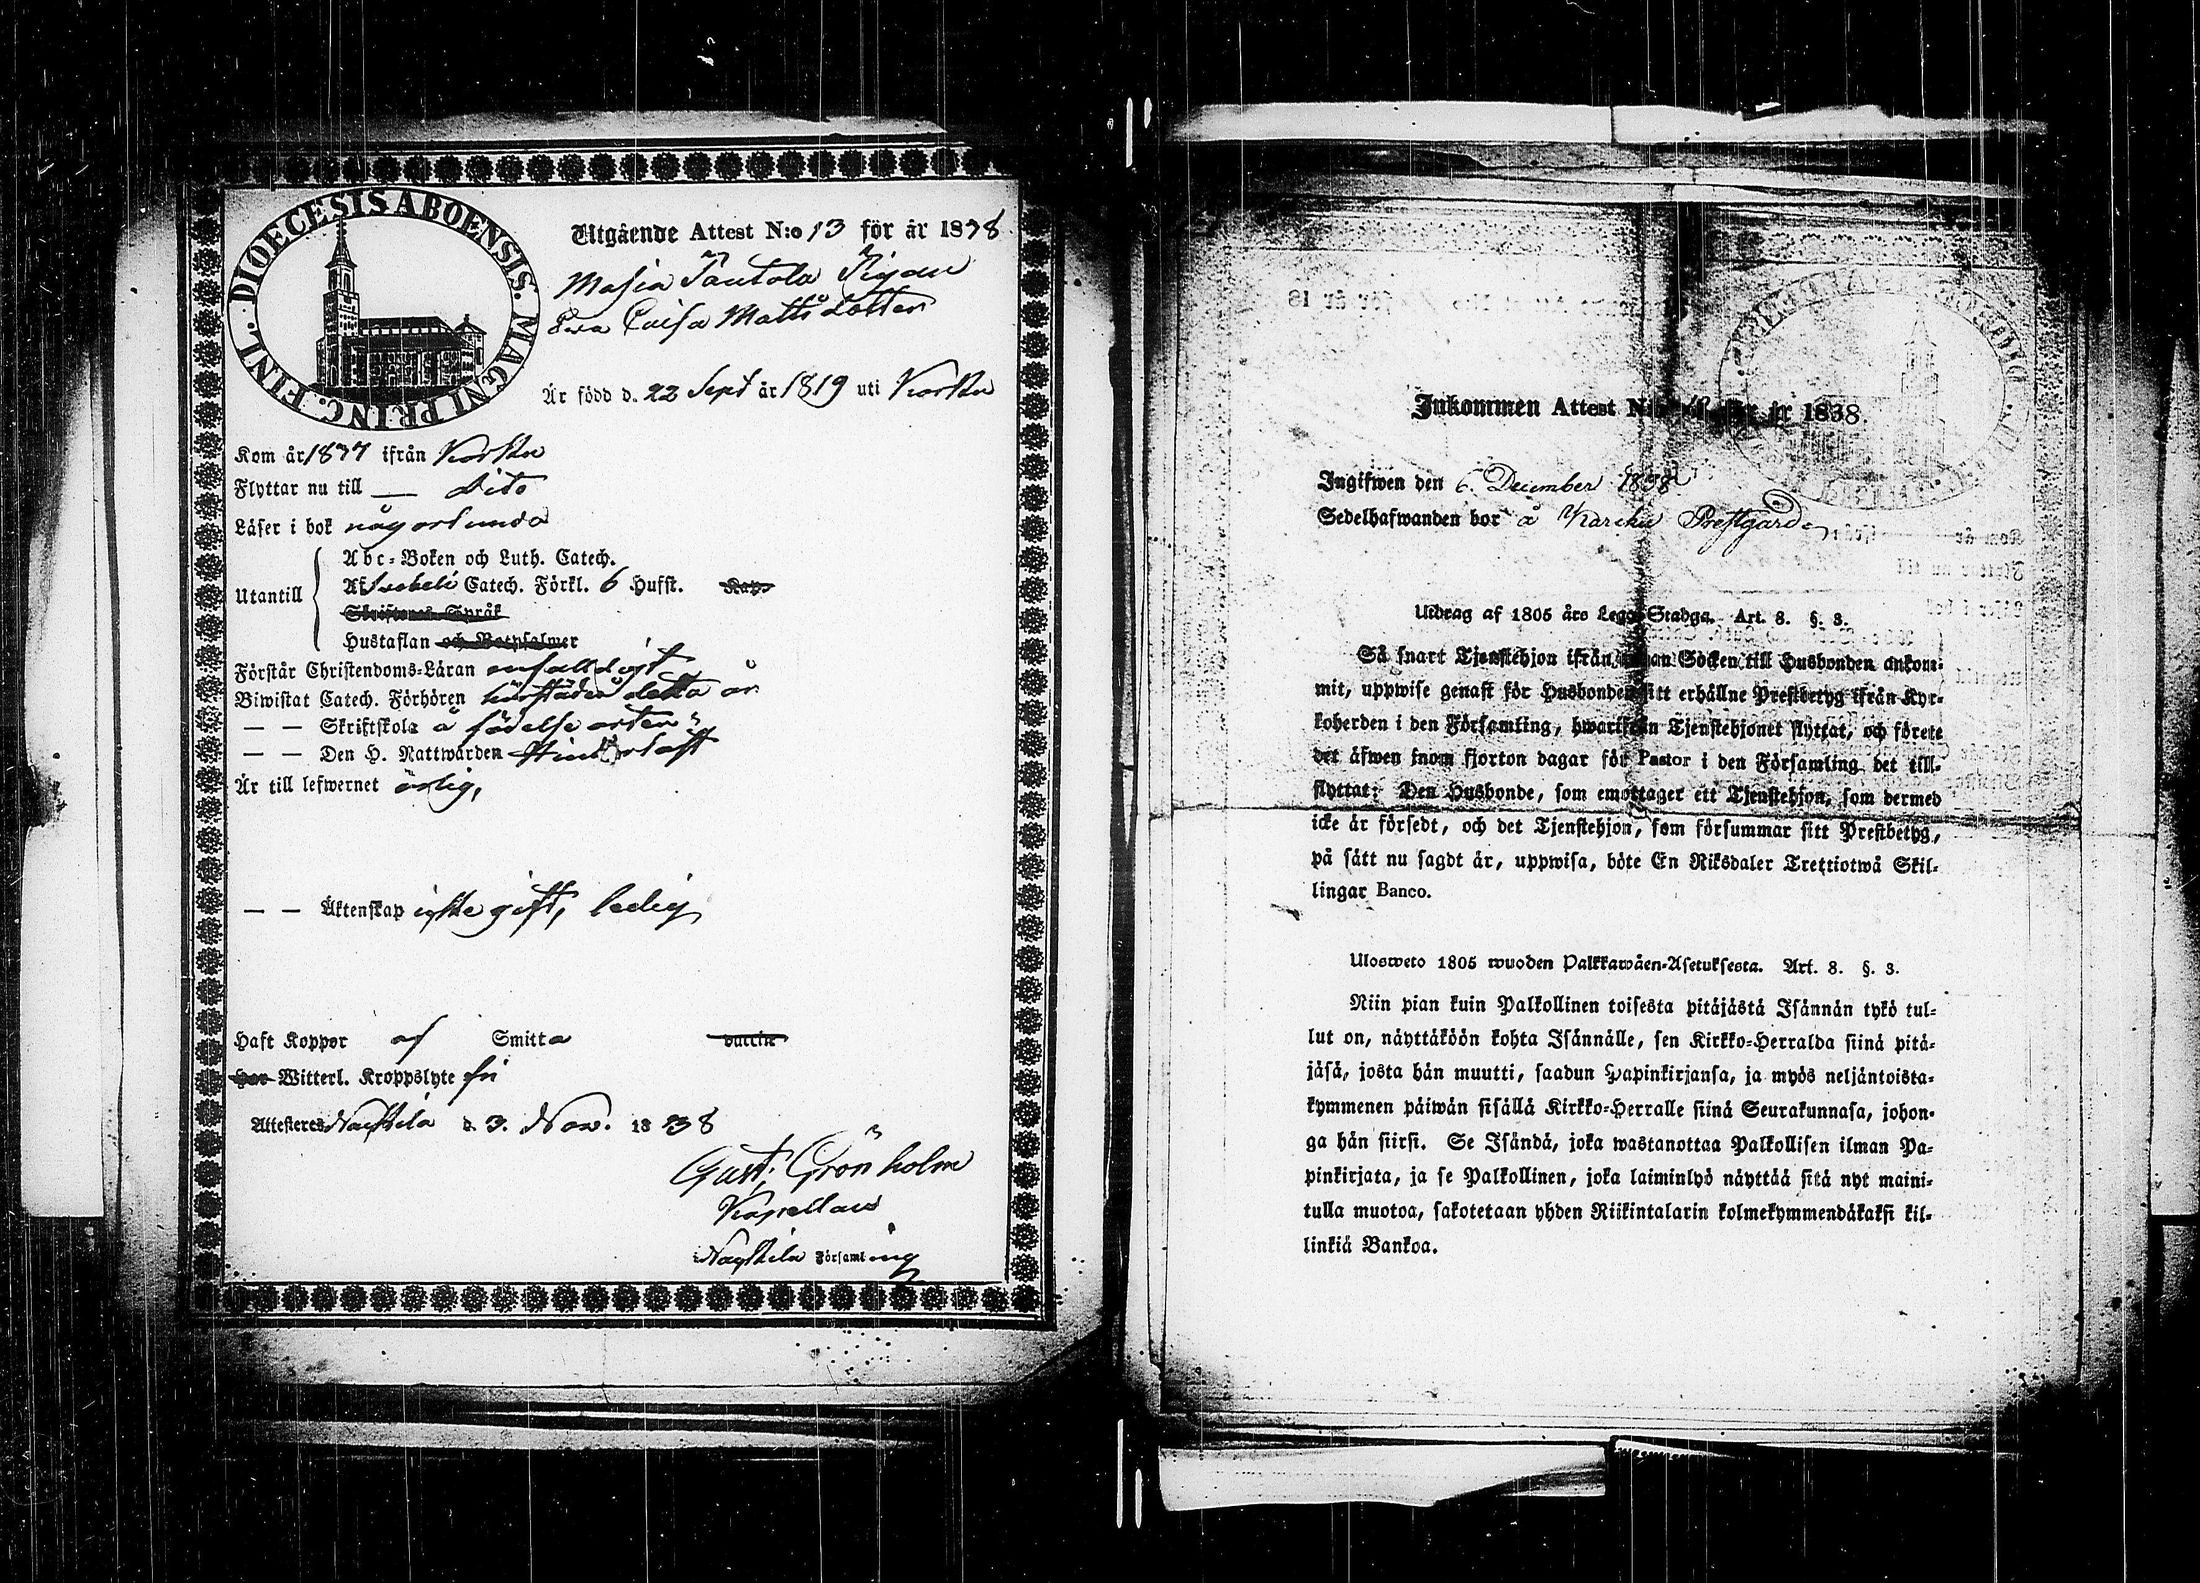 DIOECESIS ABOENSIS. MAGNI PRINC. FINL.
Utgående Attest N:o 13 för år 1838
Masia Tautola Pigan
Eva Caisa Matts dotter
Är född d. 22 Sept år 1819 uti Karku
Kom år 1837 ifrån Karku
Flyttar nu till — dito
Läser i bok någorlunda
Utantill
Abc-Boken och Luth. Catech.
Af Svebeli Catech. Förkl. 6 Hufst.
Skriftenes Språk
Hustaflan och Botpsalmer
Förstår Christendoms-Läran enfalldigt
Biwistat Catech. Förhören härstädes detta år
— — Skriftskola å födelse orten
— — Den H. Nattwarden
Är till lefwernet ärlig,
— — Äktenskap icke gift, ledig
Haft Koppor af Smitta vaccin
Har Witterl. Kroppslyte fri
Attesteres Nackila d. 3. Nov. 1838
Gust. Grönholm
Kapellan
Nackila Församling
Inkommen Attest N:o för år 1838.
Ingifwen den 6. December 1838
Sedelhafwanden bor å Karcku Prestgård
Utdrag af 1805 års Lego-Stadga. Art. 8. §. 3.
Så snart Tjenstehjon ifrån annan Socken till Husbonden ankom-
mit, uppwise genast för Husbonden sitt erhållne Prestbetyg ifrån Kyr-
koherden i den Församling, hwarifrån Tjenstehjonet flyttat, och förete
det äfwen inom fjorton dagar för Pastor i den Församling det till-
flyttat; Den Husbonde, som emottager ett Tjenstehjon, som dermed
icke är försedt, och det Tjenstehjon, som försummar sitt Prestbetyg,
på sätt nu sagdt är, uppwisa, böte En Riksdaler Trettiotwå Skil-
lingar Banco.
Ulosweto 1805 wuoden Palkkawäen-Asetuksesta. Art. 8. §. 3.
Niin pian kuin Palkollinen toisesta pitäjästä Isännän tykö tul-
lut on, näyttäköön kohta Isännälle, sen Kirkko-Herralda siinä pitä-
jäsä, josta hän muutti, saadun Papinkirjansa, ja myös neljäntoista-
kymmenen päiwän sisällä Kirkko-Herralle siinä Seurakunnasa, johon-
ga hän siirsi. Se Isändä, joka wastanottaa Palkollisen ilman Pa-
pinkirjata, ja se Palkollinen, joka laiminlyö näyttää sitä nyt maini-
tulla muotoa, sakotetaan yhden Riikintalarin kolmekymmendäkaksi kil-
linkiä Bankoa.